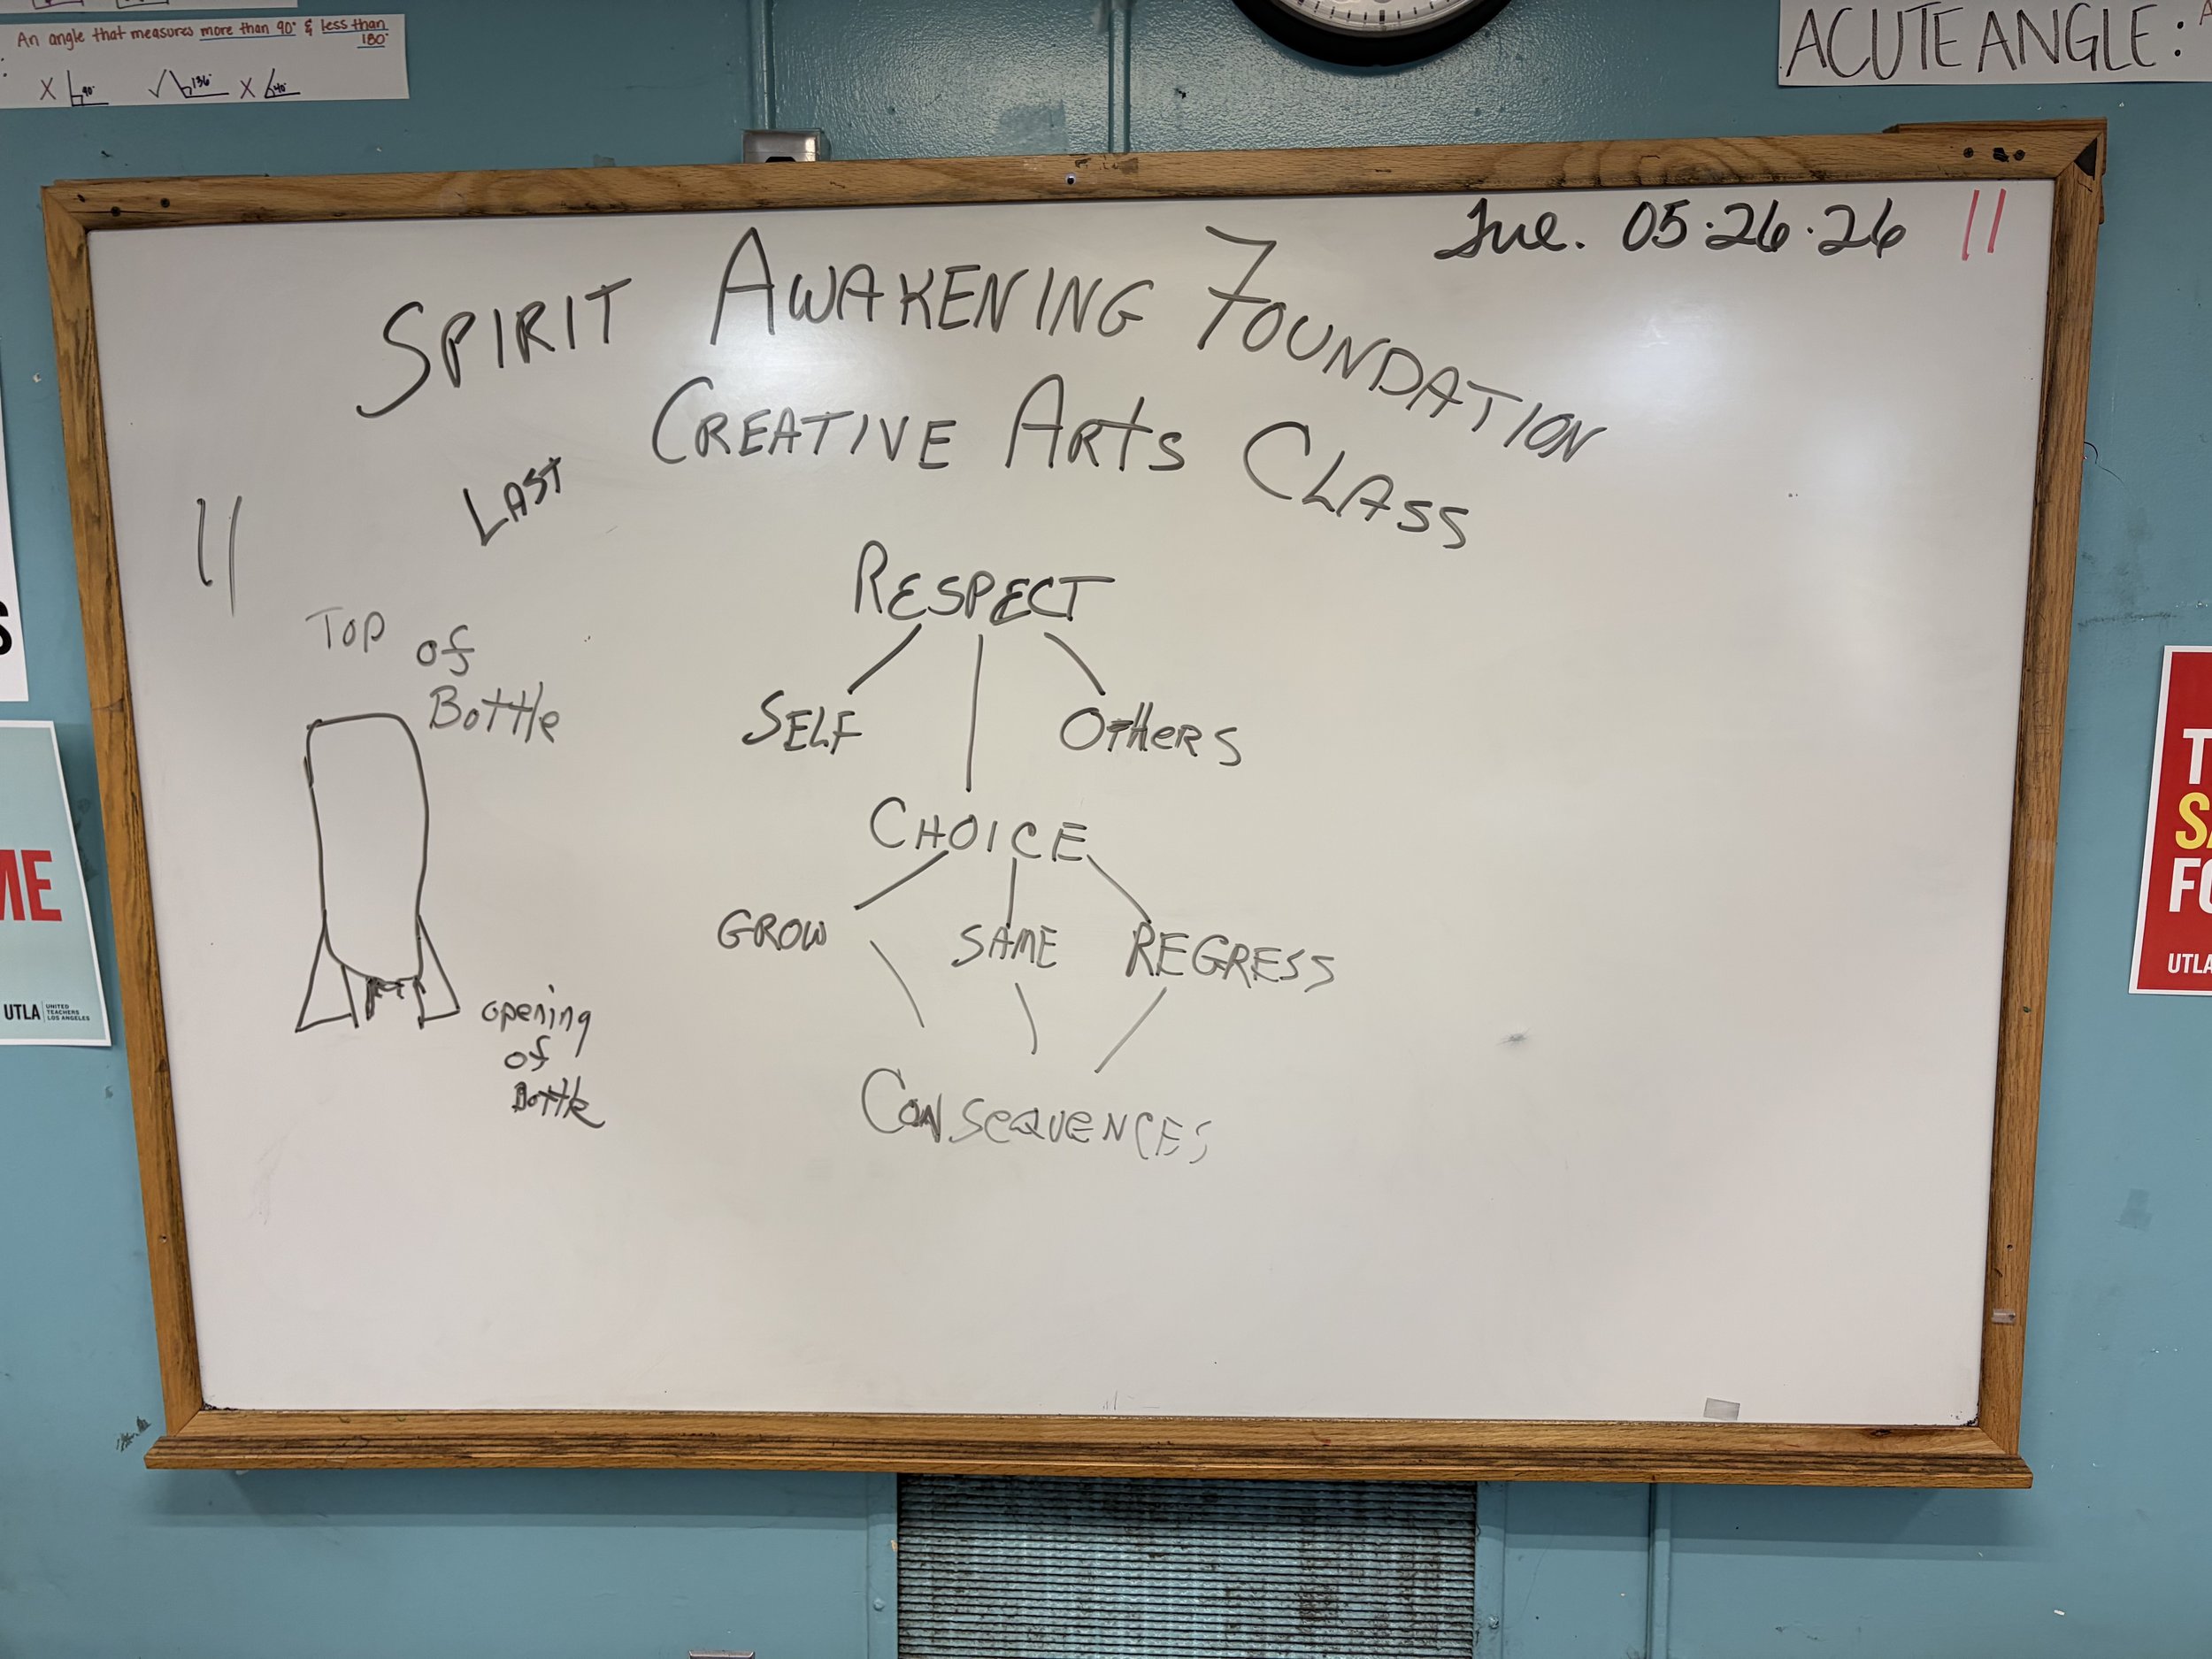 An angle that measures more than 90° & less than 180°
X 90° ✓ 136° X 40°
ACUTE ANGLE:
Tue. 05.26.26 11
SPIRIT AWAKENING FOUNDATION
LAST CREATIVE ARTS CLASS
11
RESPECT
SELF OTHERS
CHOICE
GROW SAME REGRESS
CONSEQUENCES
TOP of Bottle
opening
of
Bottle
S
ME
UTLA UNITED TEACHERS LOS ANGELES
T
SA
FO
UTLA